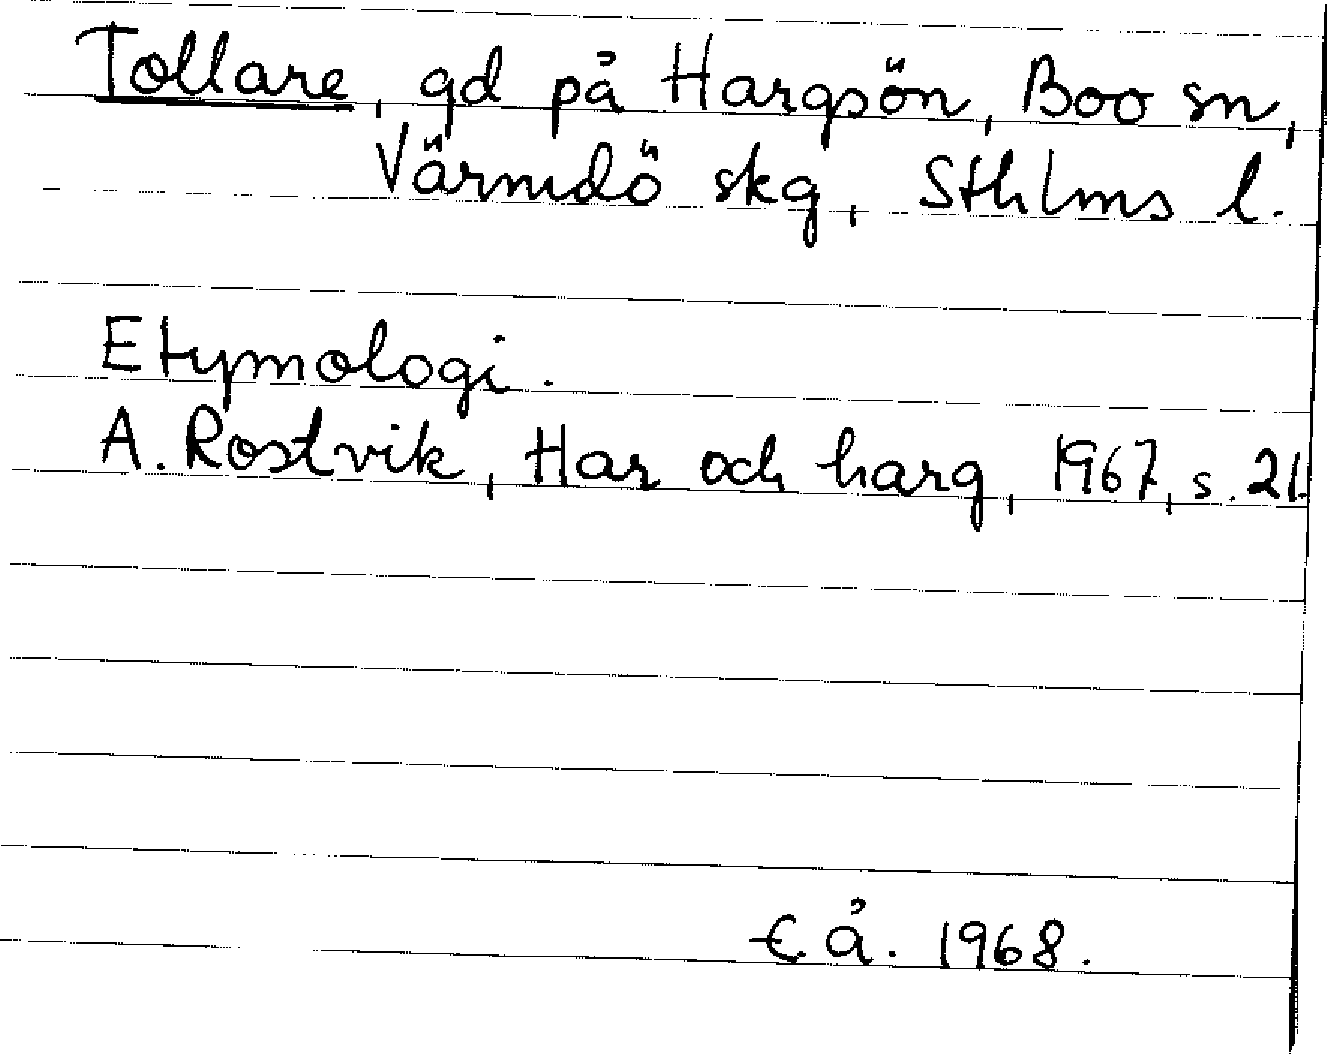 Tollare, gd på Hargsön, Boo sn,
Värmdö skg, Sthlms l.
Etymologi.
A. Rostvik, Har och harg, 1967, s. 21.
E. å. 1968.